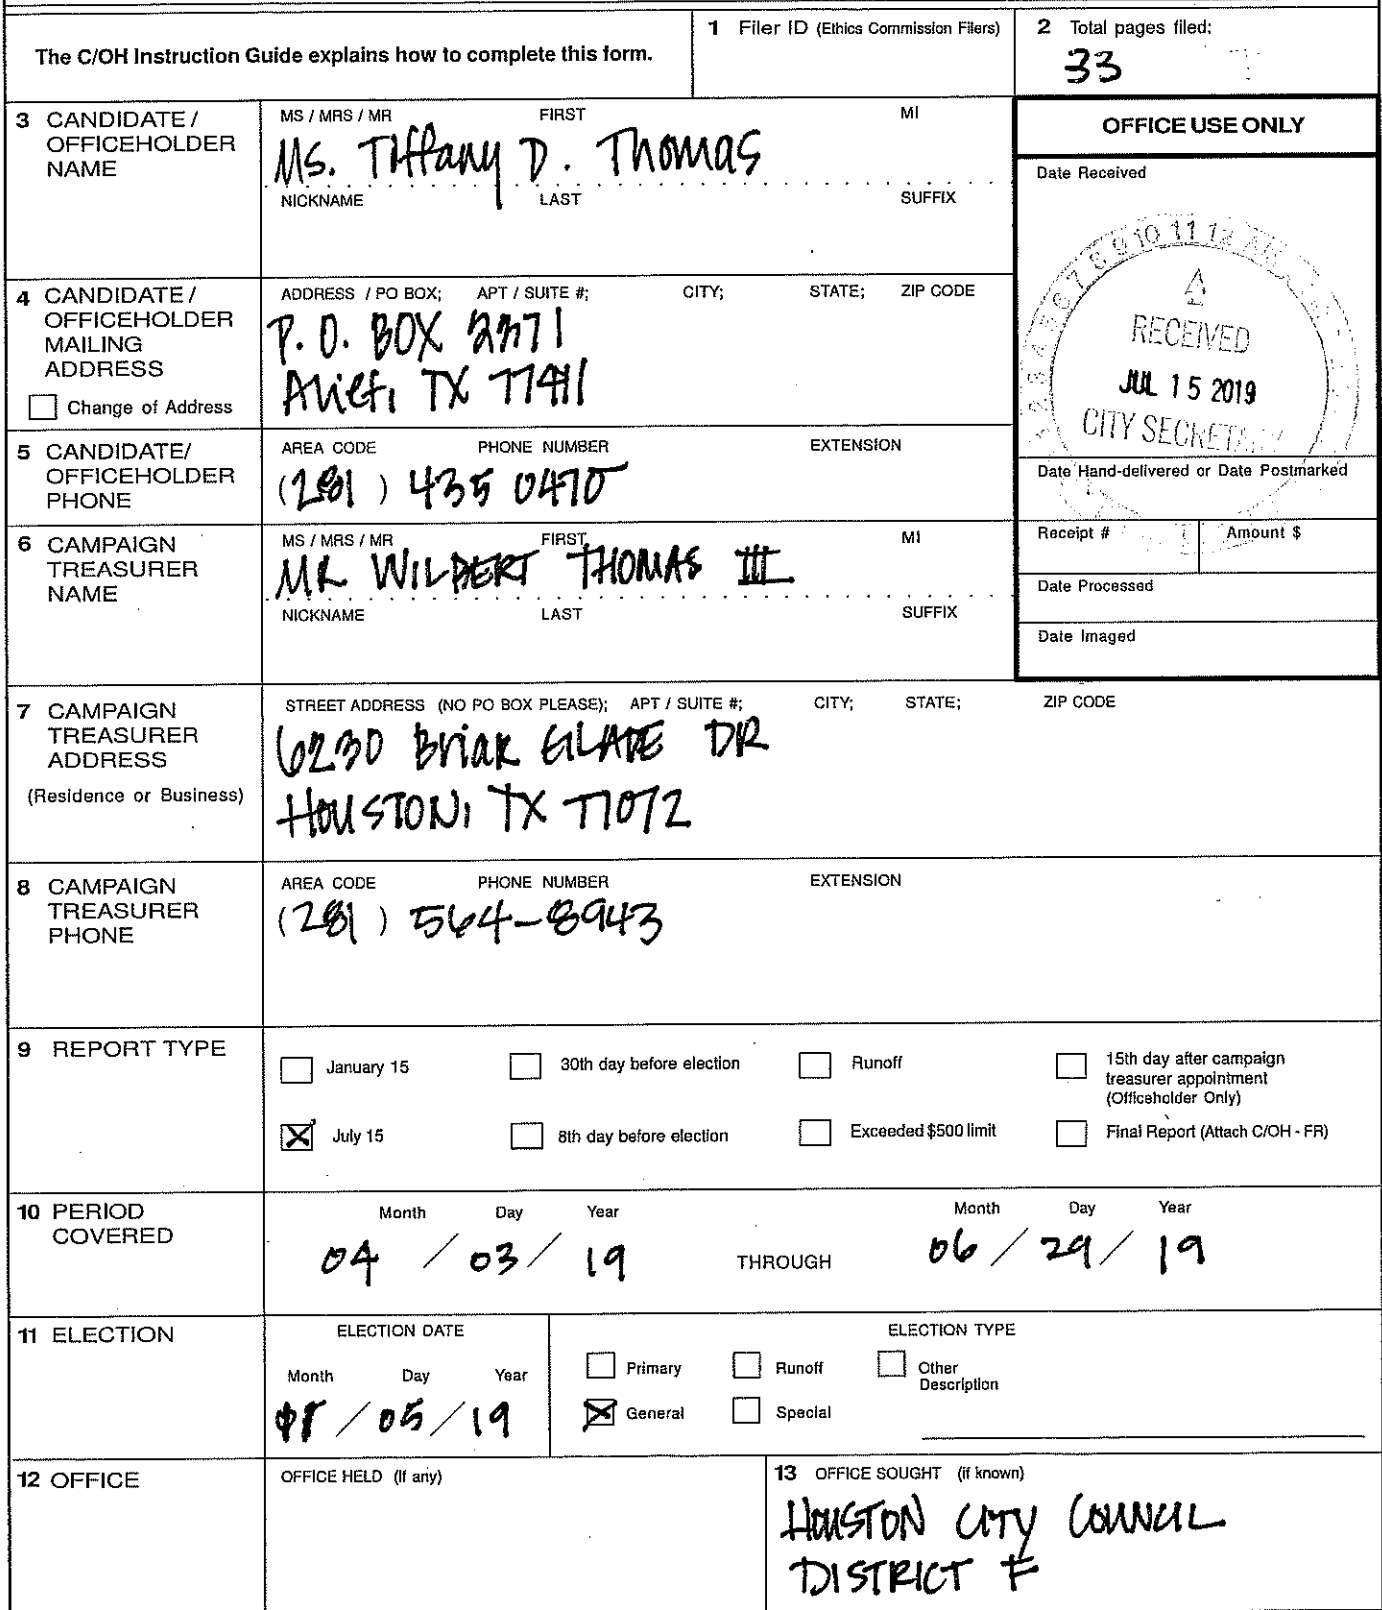 The C/OH Instruction Guide explains how to complete this form.
1 Filer ID (Ethics Commission Filers)
2 Total pages filed:
33
3 CANDIDATE / OFFICEHOLDER NAME
MS / MRS / MR FIRST MI
Ms. Tiffany D. Thomas
NICKNAME LAST SUFFIX
OFFICE USE ONLY
Date Received
5 6 7 8 9 10 11 12 AM
RECEIVED
JUL 15 2019
CITY SECRETARY
Date Hand-delivered or Date Postmarked
Receipt # Amount $
Date Processed
Date Imaged
4 CANDIDATE / OFFICEHOLDER MAILING ADDRESS
Change of Address
ADDRESS / PO BOX; APT / SUITE #; CITY; STATE; ZIP CODE
P.O. BOX 2371
Alief, TX 77411
5 CANDIDATE/ OFFICEHOLDER PHONE
AREA CODE PHONE NUMBER EXTENSION
(281) 435 0470
6 CAMPAIGN TREASURER NAME
MS / MRS / MR FIRST MI
MR WILBERT THOMAS III
NICKNAME LAST SUFFIX
7 CAMPAIGN TREASURER ADDRESS
(Residence or Business)
STREET ADDRESS (NO PO BOX PLEASE); APT / SUITE #; CITY; STATE; ZIP CODE
6230 Briar GLADE DR
HOUSTON, TX 77072
8 CAMPAIGN TREASURER PHONE
AREA CODE PHONE NUMBER EXTENSION
(281) 564-8943
9 REPORT TYPE
January 15 30th day before election Runoff 15th day after campaign treasurer appointment (Officeholder Only)
July 15 8th day before election Exceeded $500 limit Final Report (Attach C/OH - FR)
10 PERIOD COVERED
Month Day Year Month Day Year
04 / 03 / 19 THROUGH 06 / 29 / 19
11 ELECTION
ELECTION DATE
Month Day Year
/ 05 / 19
ELECTION TYPE
Primary Runoff Other Description
General Special
12 OFFICE
OFFICE HELD (If any)
13 OFFICE SOUGHT (if known)
HOUSTON CITY COUNCIL
DISTRICT F